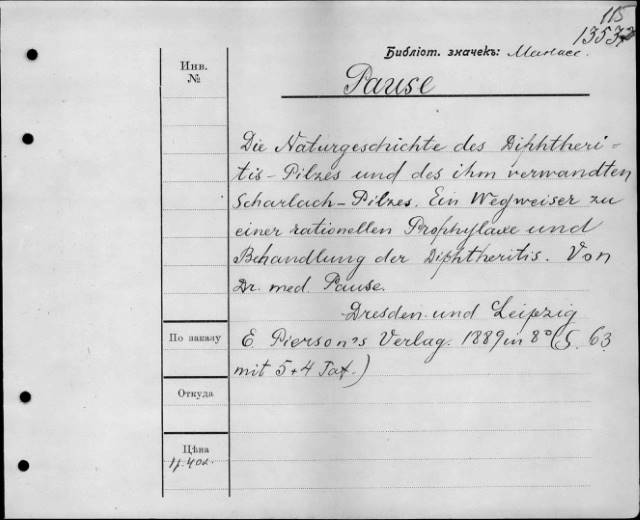 115
Библіот. значекъ:
Инв.
№
Pause
Die Naturgeschichte des Diphtheri-
tis-Pilzes und des ihm verwandten
Scharlach-Pilzes. Ein Wegweiser zu
einer rationellen Prophylaxe und
Behandlung der Diphtheritis. Von
Dr. med. Pause.
Dresden und Leipzig
По заказу
E. Pierson's Verlag. 1889 in 8° (S. 63
mit 5+4 Taf.)
Откуда
Цѣна